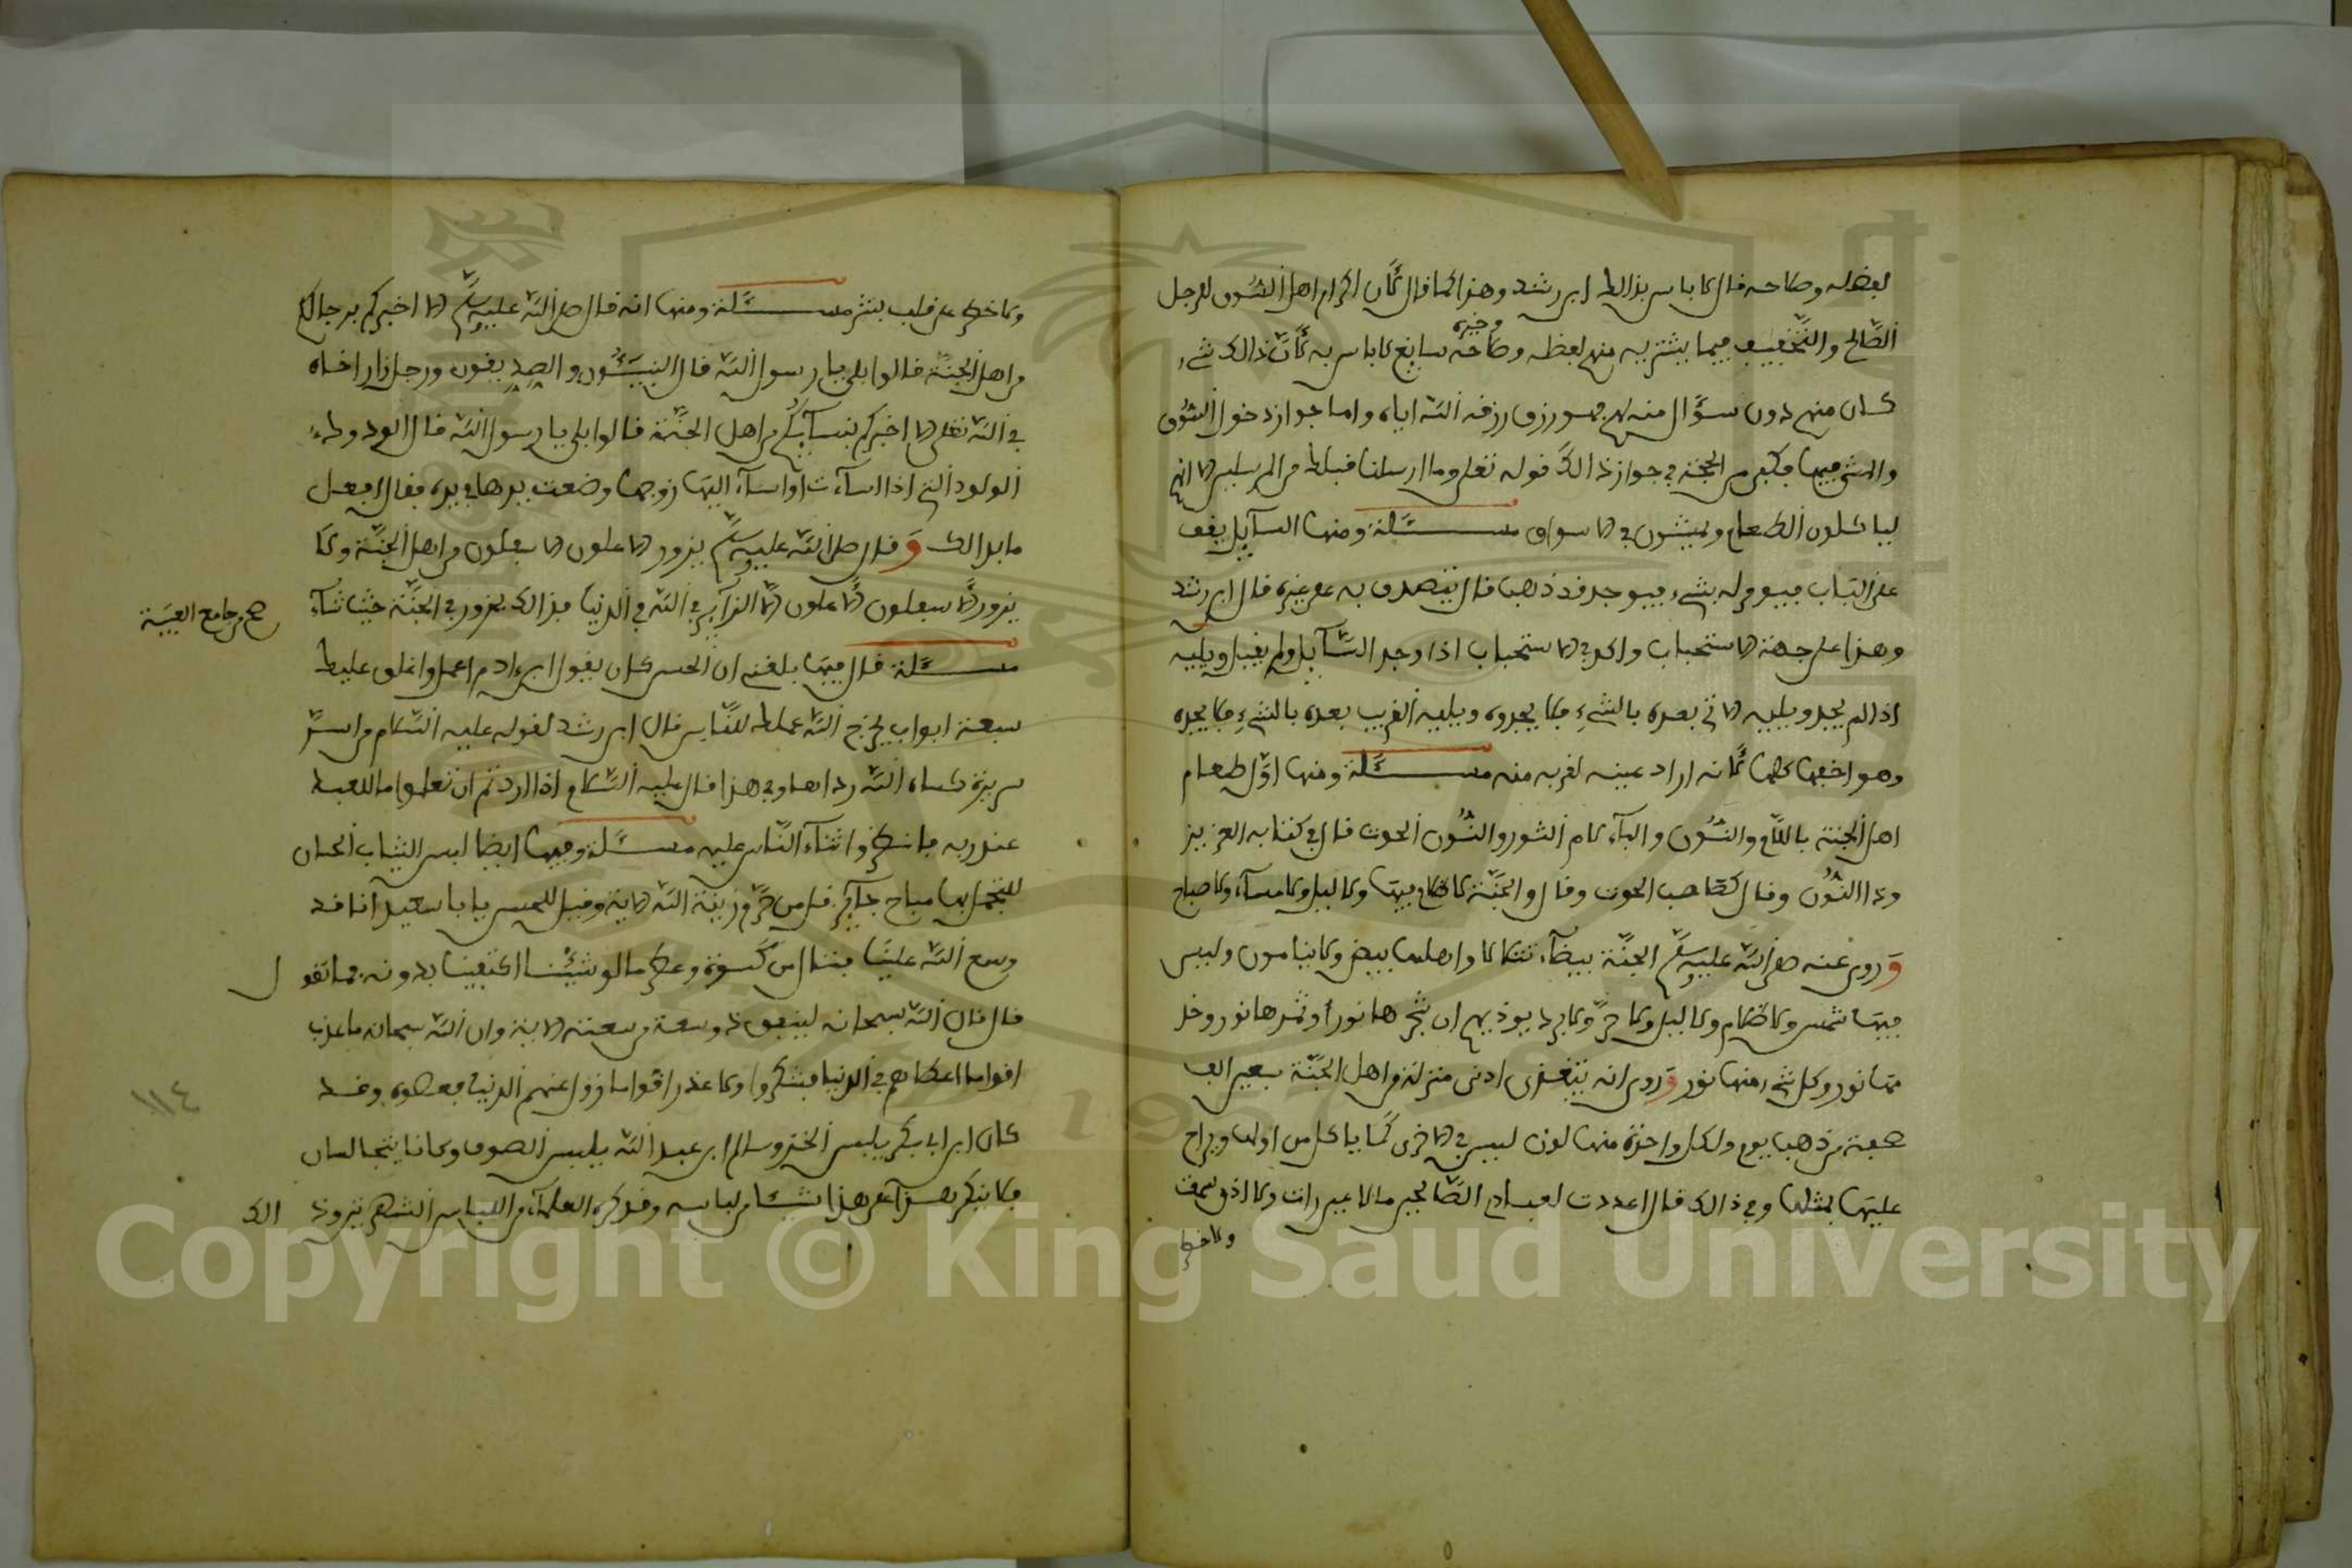 لفضله وصلاحه قال لا باس بذالك ابن رشد وهذا كما قال لأن اكرام اهل السوق للرجل
الصّالح والتخفيف فيما يشتريه منهم لفضله وصلاحه وخيره سايغ لا باس به لأنّ ذالك شيء
كان منهم دون سؤال منه لهم فهو رزق رزقه الله اياه واما جواز دخول السّوق
والمشي فيها فكفى من الحجة في جواز ذالك قوله تعلى وما ارسلنا قبلك من المرسلين الا انهم
لياكلون الطعام ويمشون في الاسواق مسئلة ومنها السآيل يقف
على الباب فيومر له بشيء فيوجد قد ذهب قال يتصدق به على غيره قال ابن رشد
وهذا على جهة الاستحباب واكد في الاستحباب اذا وجد السّآيل ولم يقبل ويليه
اذا لم يجد ويليه الاتي بعده بالشيء فلا يجدوه ويليه القريب بعده بالشيء فلا يجده
وهو اخفها كلها لأنه اراد عينه لقربه منه مسئلة ومنها اوّل طعام
اهل الجنة باللّام والنّون والبآء لام الثور والنّون الحوت قال في كتابه العزيز
وذا النّون وقال كصاحب الحوت وقال والجنّة لا ظلام فيها ولا ليل ولا مسآء ولا صباح
وروى عنه صلى الله عليه وسلم الجنّة بيضآء تتلالا واهلها بيض ولا ينامون وليس
فيها شمس ولا ظلام ولا ليل ولا حرّ ولا برد يوذيهم ان شجرها نور وثمرها نور وخل
مما نور وكل شيء منها نور وروى انه يتغذى ادنى منزلة من اهل الجنّة بسبعين الف
صحفة من ذهب يوم ولكل واحدة منها لون ليس في الاخرى كما ياكل من اولها ويراح
عليها بمثلها وفي ذالك قال اعددت لعبادى الصّالحين ما لا عين رات ولا اذن سمعت
ولا خطر
ولا خطر على قلب بشر مسئلة ومنها انه قال صلى الله عليه وسلم الا اخبركم برجالكم
من اهل الجنّة قالوا بلى يا رسول الله قال النبيئون والصديقون ورجل زار اخاه
في الله تعلى الا اخبركم بنسآيكم من اهل الجنّة قالوا بلى يا رسول الله قال الودود
الولود التي اذا اسآءت او اسآء اليها زوجها وضعت يدها في يده فقال افعل
ما بدالك وقال صلى الله عليه وسلم يزور الاعلون الاسفلون من اهل الجنّة ولا
يزور الاسفلون الاعلون الا الزآير في الله في الدنيا فذالك يزور في الجنّة حيث شآء
صح من جامع العتبية
مسئلة قال فيها بلغني ان الحسن كان يقول ابن ءادم اعمل واغلق عليك
سبعة ابواب يخرج الله عملك للنّاس قال ابن رشد لقوله عليه السّلام من اسرّ
سريرة كساه الله رداها وفي هذا قال عليه السّلام اذا اردتم ان تعلموا ما للعبد
عند ربه فانظروا ثنآء النّاس عليه مسئلة وفيها ايضا لبس الثياب الحسان
للتجمل بها مباح جآيز قل من حرّم زينة الله الاية وقيل للحسن يا با سعيد انا قد
وسع الله علينا فننال من كسوة وعطر ما لو شيئنا اكتفينا بدونه فما تقول
قال قال الله سبحانه لينفق ذو سعة من سعته الاية وان الله سبحانه ما عذب
اقواما اعطاهم في الدنيا فشكروا ولا عذر اقواما زوى عنهم الدنيا فعصوه وقد
كان ابن ابي بكر يلبس الخز وسالم ابن عبد الله يلبس الصوف وكانا يتجالسان
فلا ينكر هذا على هذا شيئا من لباسه وقد كره العلمآء من اللباس الشهرتين وذالك
١١٤
Copyright © King Saud University
1957